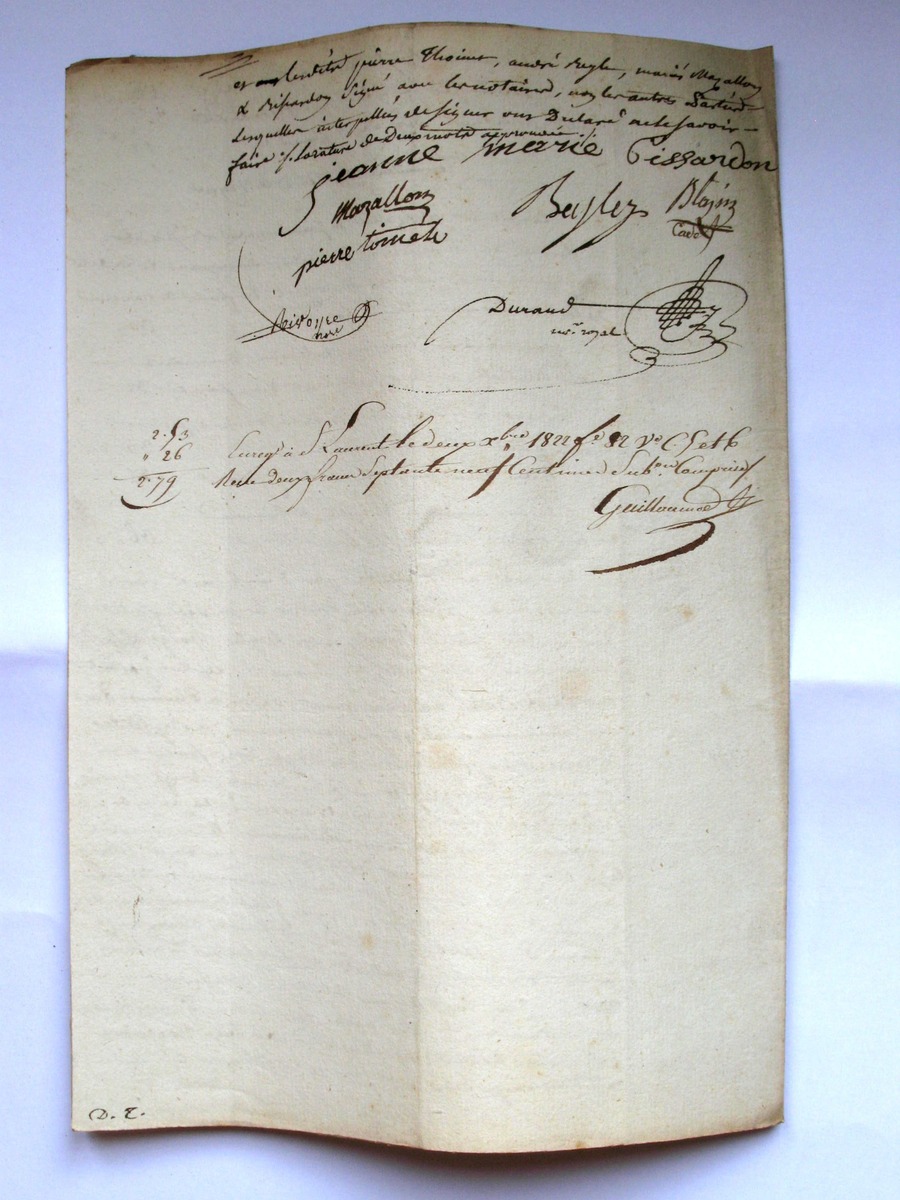 et lesdits pierre Thoinet, andré Beyle, mariés Mazallon
& Pissardon Signé avec les notaires, non les autres parties
Lesquelles interpellées de signer ont Déclaré ne le savoir
faire ·/· la rature de Deux mots approuvée ·/·
Jeanne marie Pissardon
Mazallon Beyle Blazin
Cadet
pierre toinet
not.re Durand
not.re royal
2·53
" 26 Enreg.é à S.t Laurent le deux xbre 182 f.o 82 v.o C 5 et 6
2·79 Reçu deux francs Septante neuf Centimes Sub.on Comprise
Guillaumot
D. T.